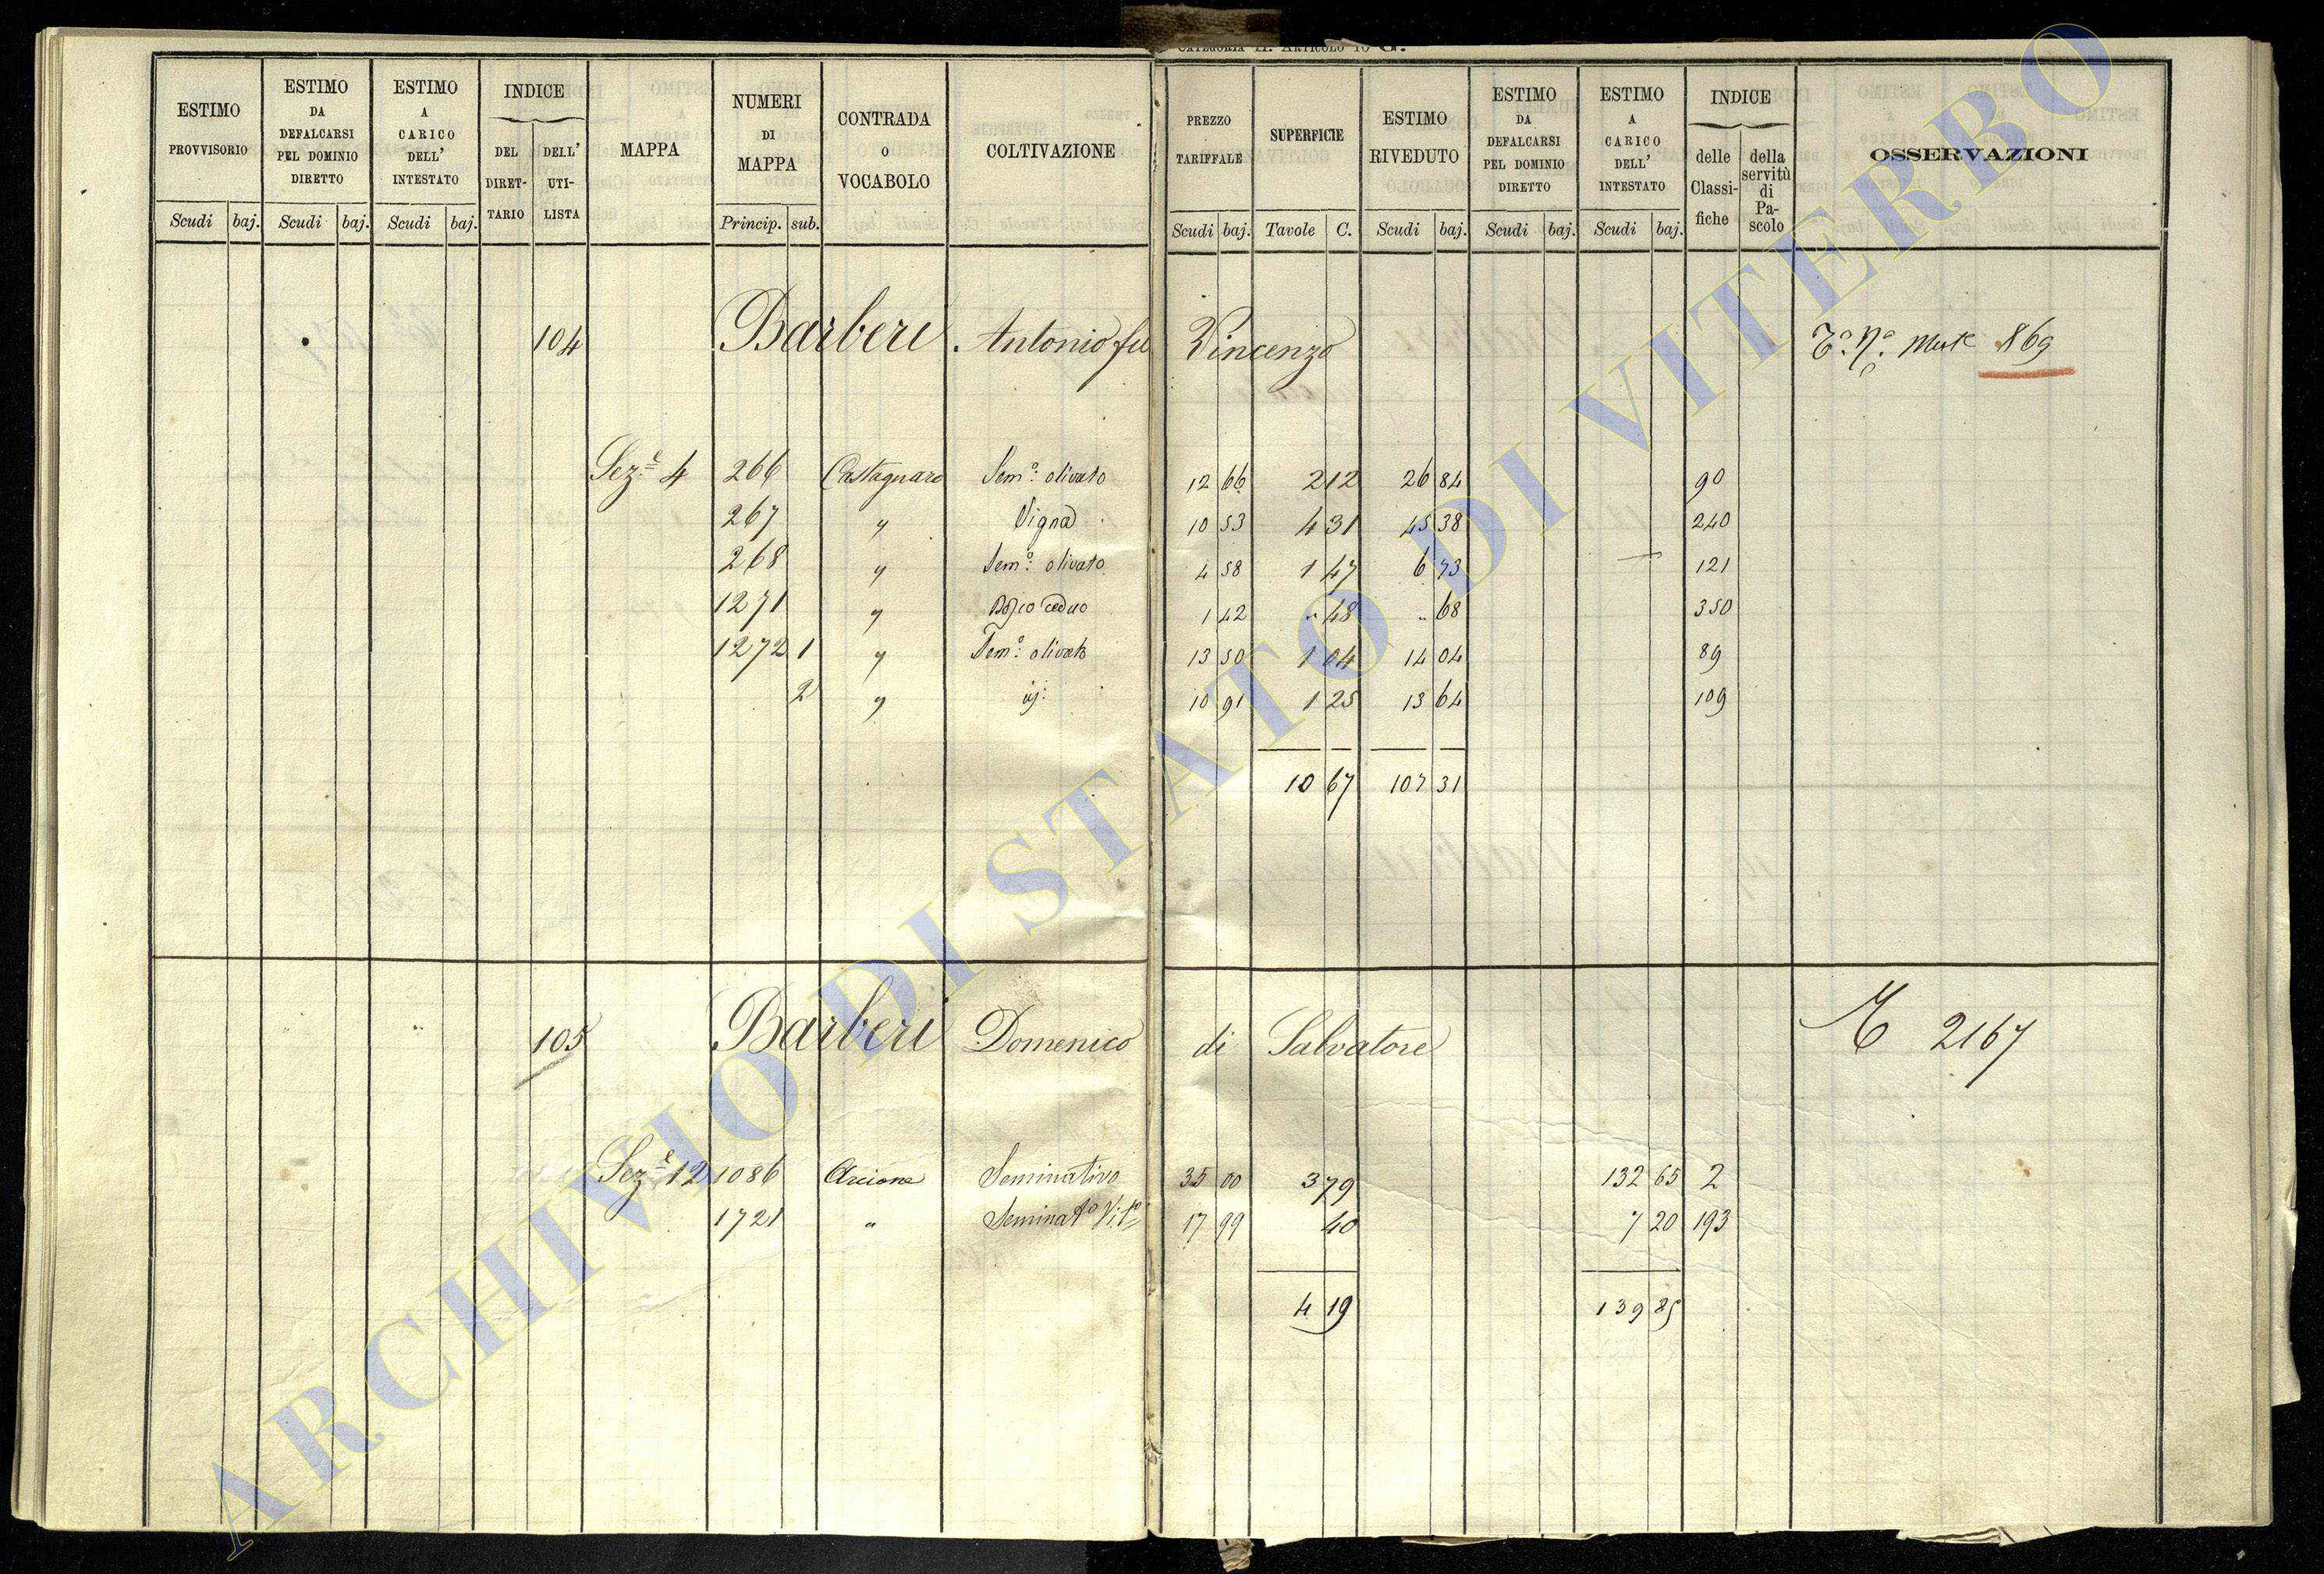 CATEGORIA II. ARTICOLO 10 G.
ESTIMO PROVVISORIO
Scudi baj.
ESTIMO DA DEFALCARSI PEL DOMINIO DIRETTO
Scudi baj.
ESTIMO A CARICO DELL' INTESTATO
Scudi baj.
INDICE
DEL DIRET- TARIO
DELL' UTI- LISTA
MAPPA
NUMERI DI MAPPA
Princip. sub.
CONTRADA O VOCABOLO
COLTIVAZIONE
PREZZO TARIFFALE
Scudi baj.
SUPERFICIE
Tavole C.
ESTIMO RIVEDUTO
Scudi baj.
ESTIMO DA DEFALCARSI PEL DOMINIO DIRETTO
Scudi baj.
ESTIMO A CARICO DELL' INTESTATO
Scudi baj.
INDICE
delle Classi- fiche
della servitù di Pa- scolo
OSSERVAZIONI
104 Barberi Antonio fu Vincenzo 869
Sez.e 4 266 Castagnaro Sem.o olivato 12 66 2 12 26 84 90
267 " Vigna 10 53 4 31 45 38 240
268 " Sem.o olivato 4 58 1 47 6 73 121
1271 " ceduo 1 42 " 48 " 68 350
1272 1 " Sem.o olivato 13 50 1 04 14 04 89
2 " 10 91 1 25 13 64 109
10 67 107 31
105 Barberi Domenico di Salvatore 2167
Sez.e 12 1086 Arcione Seminativo 35 00 3 79 132 65 2
1721 " Seminat.o Vit.o 17 99 40 7 20 193
4 19 139 85
ARCHIVIO DI STATO DI VITERBO